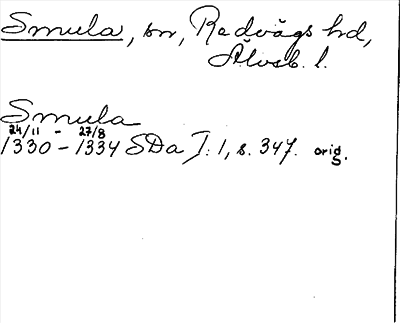 Smula, sn, Redvägs hd,
Älvsb. l.
Smula
24/11 - 27/8
1330 - 1334 SDa I: 1, s. 347. orig.